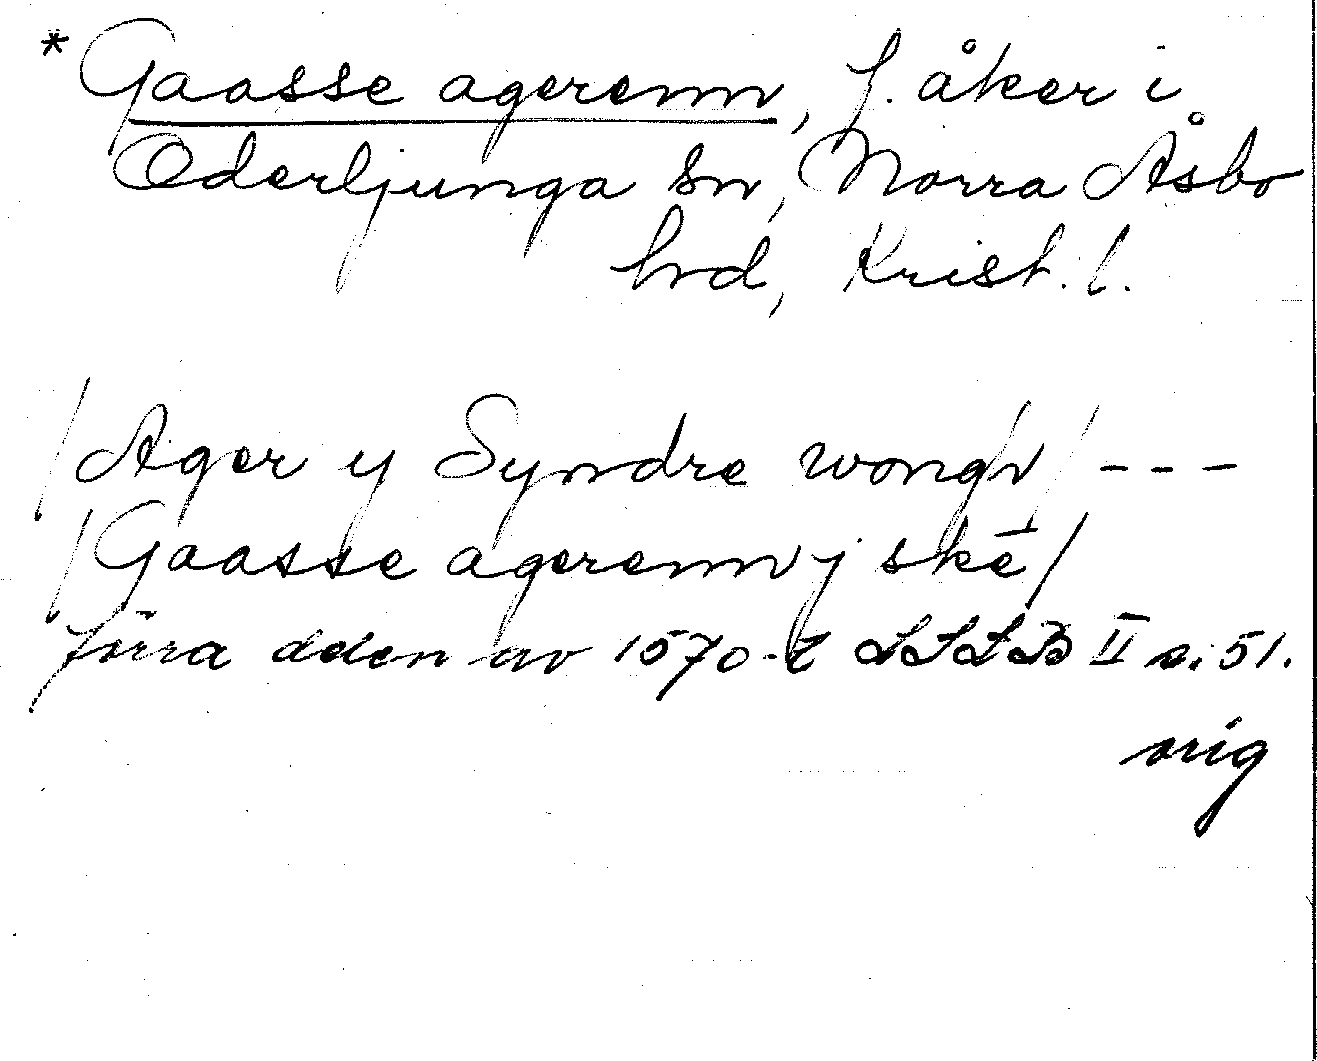 * Gaasse agerenn, f. åker i
Oderljunga sn, Norra Åsbo
hrd, Krist. l.
/Ager y Syndre wongh/ ---
/Gaasse agerenn j skē/
förra delen av 1570-t LSLB II s. 51.
orig